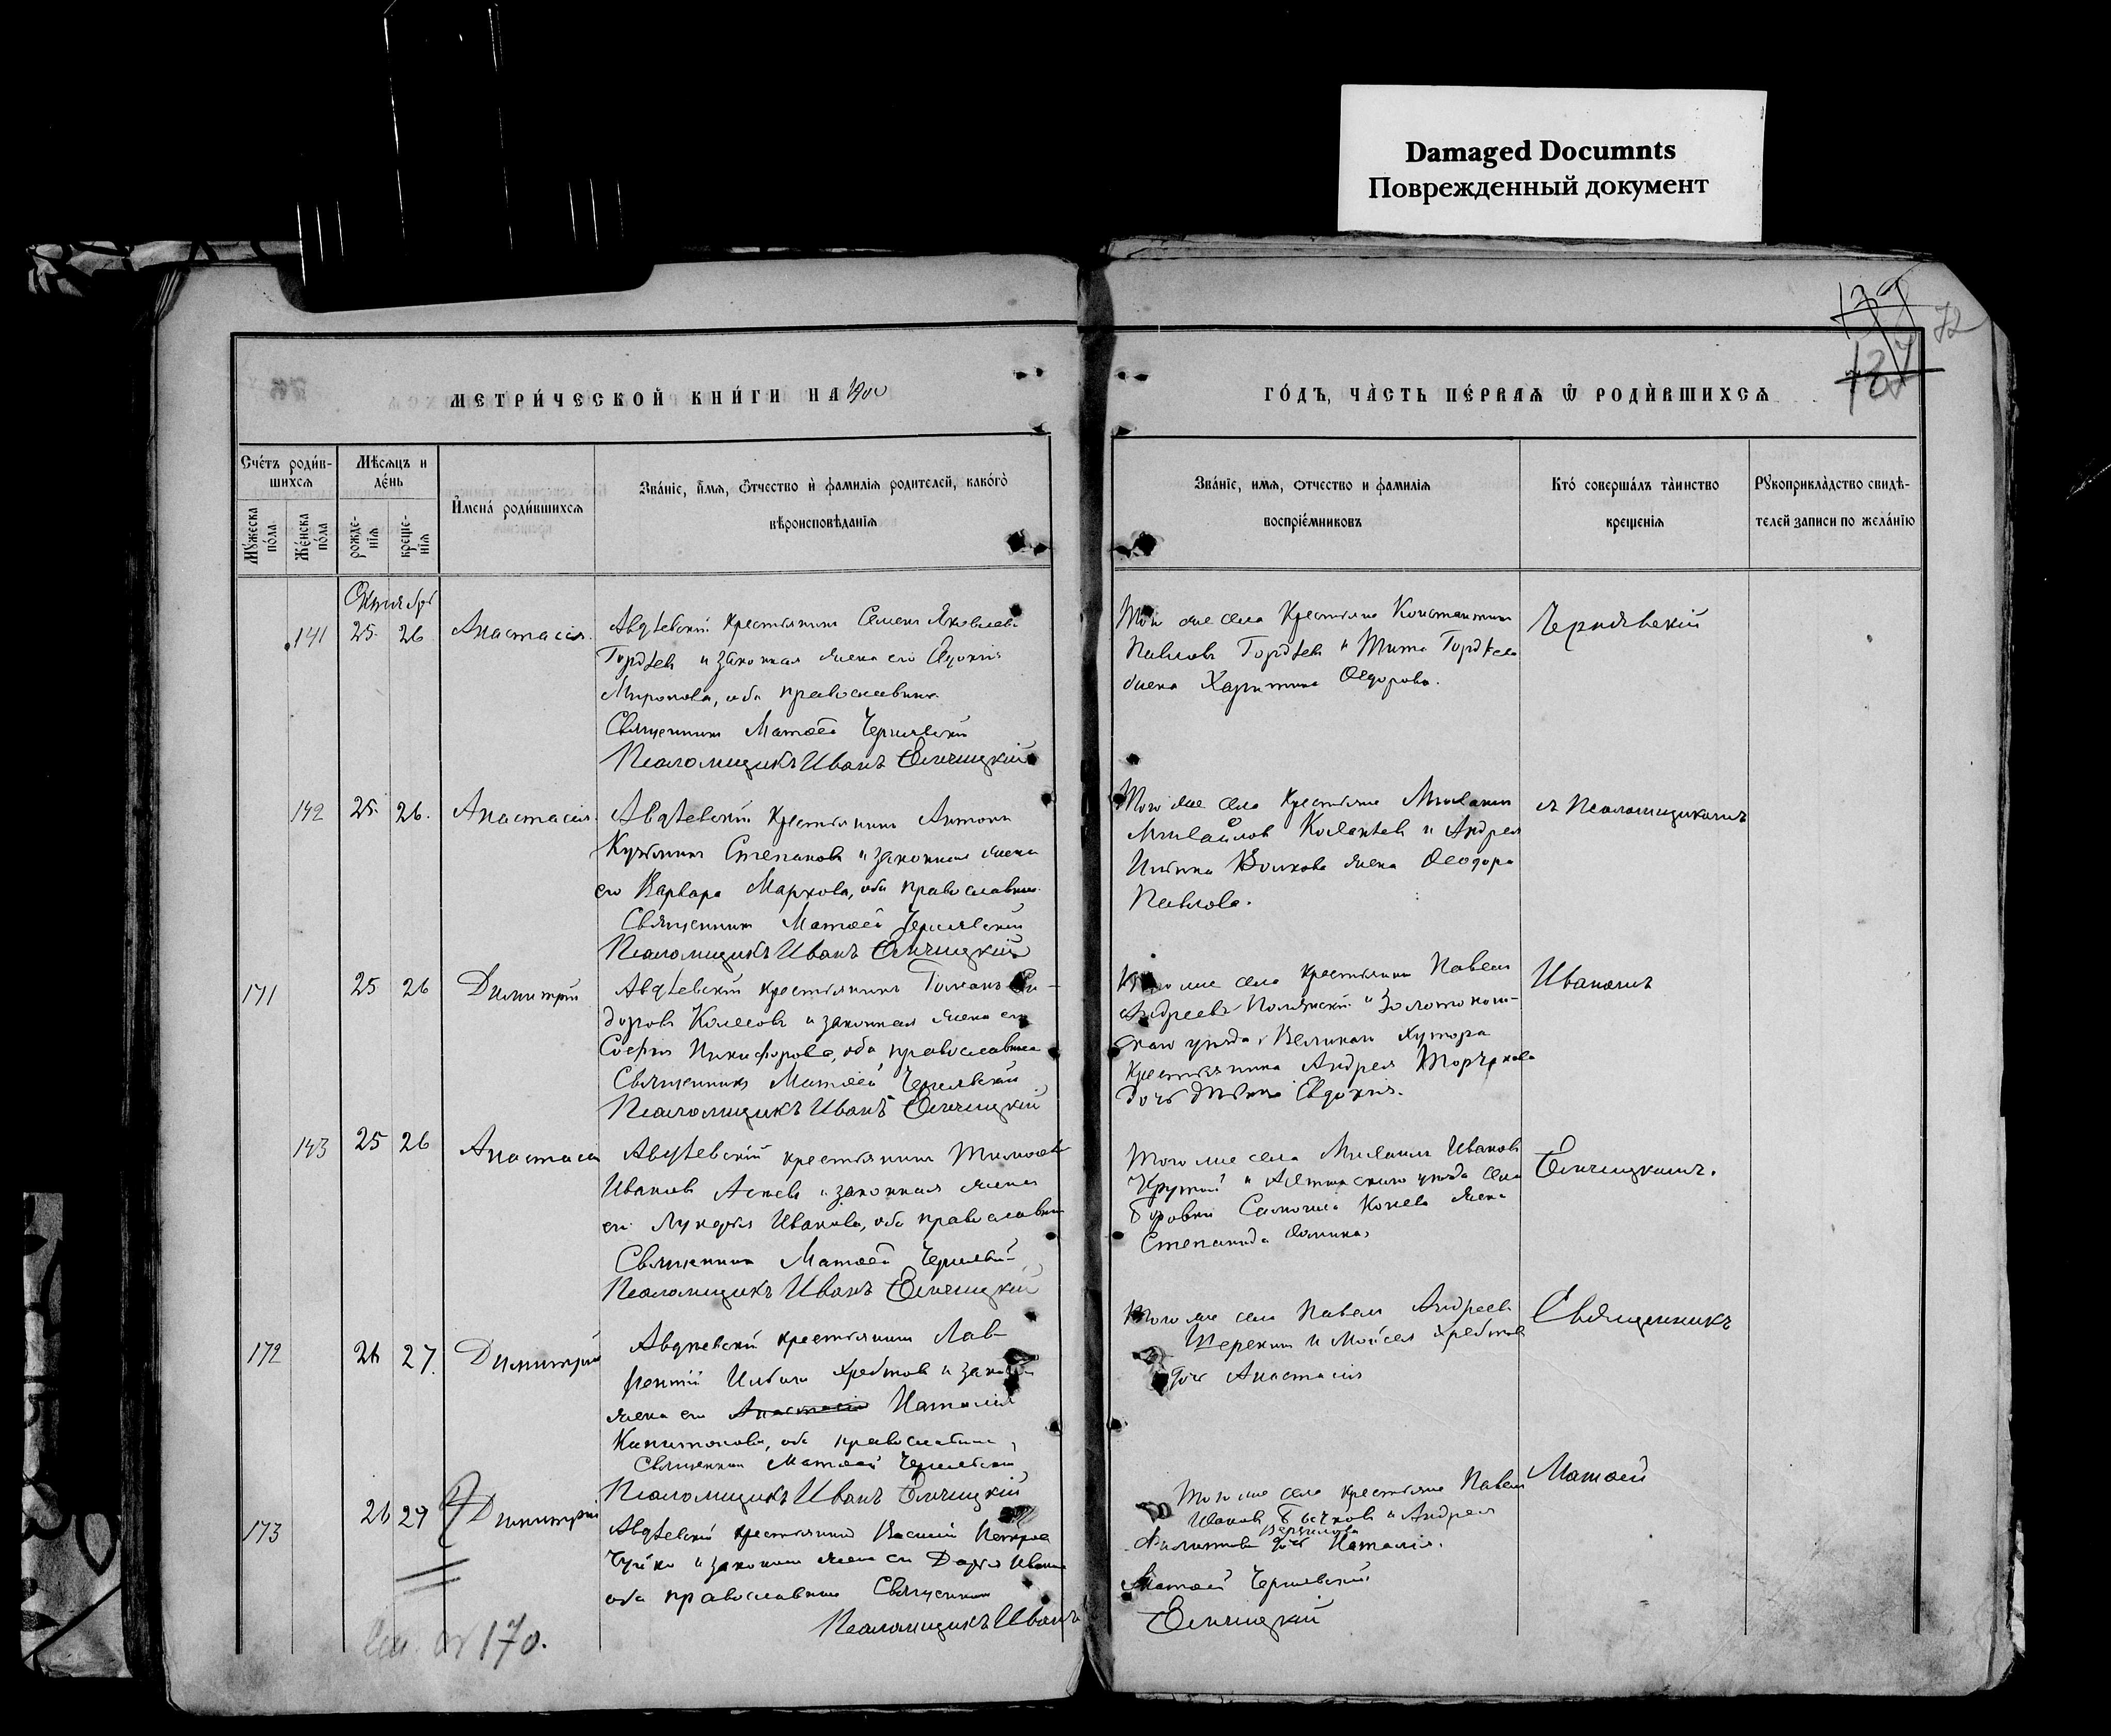 Damaged Documnts
Поврежденный документ
72
МЕТРИ́ЧЕСКОЙ КНИ́ГИ НА 1900
ГО́ДЪ, ЧА̀СТЬ ПЕ́РВАѦ Ѿ РОДЍВШИХСѦ
Сче́тъ роди́в-
шихсѧ
Мѣсѧцъ и
де́нь
Му́жеска по́ла
Же́нска по́ла
рожде-
нїѧ
креще-
нїѧ
И҆мена̀ роди́вшихсѧ
Зва́нїе, и҆́мѧ, ѻ҆́тчество и҆ фамилїѧ родителей, како́гѡ
вѣроисповѣданїѧ
Зва́нїе, имѧ, ѻтчество и фамилїѧ
воспрїе́мниковъ
Кто́ соверша́лъ та̀инство
креще́нїѧ
Рꙋкоприкла̀дство свидѣ-
телей записи по жела́нїю
Октябрь
141 25 26 Анастасія.
Авдѣевскій крестьянинъ Семенъ Яковлевъ
Гордѣевъ и законная жена его Евдокія
Миронова, оба православные
Священникъ Матѳей Чернявскій
Псаломщикъ Иванъ Елчицкій
Того же села крестьяне Константинъ
Павловъ Гордѣевъ и Тита Гордѣева
жена Харитина Ѳедорова.
Чернявскій
142 25 26. Анастасія.
Авдѣевскій крестьянинъ Антонъ
Кузьминъ Степановъ и законная жена
его Варвара Маркова, оба православные
Священникъ Матѳей Чернявскій
Псаломщикъ Иванъ Елчицкій
Того же села крестьяне Михаилъ
Михайловъ и Андрея
Ильина Волкова жена Ѳеодора
Павлова.
съ Псаломщикомъ
171 25 26 Димитрій
Авдѣевскій крестьянинъ Романъ Си-
доровъ Колесовъ и законная жена его
Софія Никифорова, оба православные
Священникъ Матѳей Чернявскій
Псаломщикъ Иванъ Елчицкій
Того же села крестьянинъ Павелъ
Андреевъ и Золотонош-
скаго уѣзда, Великаго Хутора
крестьянина Андрея
дочь дѣвица Евдокія.
Иваномъ
143 25 26 Анастасія
Авдѣевскій крестьянинъ Тимоѳей
Ивановъ и законная жена
его Лукерія Иванова, оба православные
Священникъ Матѳей Чернявскій
Псаломщикъ Иванъ Елчицкій
Того же села Михаилъ Ивановъ
Крутій и уѣзда села
жена
Степанида
Елчицкимъ.
172 26 27. Димитрій
Авдѣевскій крестьянинъ Лав-
рентій Ильинъ Хребтовъ и законная
жена его Анастасія Наталія
Капитонова, оба православные,
Священникъ Матѳей Чернявскій
Псаломщикъ Иванъ Елчицкій
Того же села Павелъ Андреевъ
и Моисея Хребтова
дочь Анастасія
Священникъ
173 26 27 Димитрій
Авдѣевскій крестьянинъ Василій Петровъ
Чуйко и законная жена его Дарія Иванова
оба православные Священникъ
Псаломщикъ Иванъ
Того же села крестьяне Павелъ
Ивановъ Бычковъ и Андрея
Филиппова дочь Наталія.
Матѳей Чернявскій
Елчицкій
Матѳей
170.